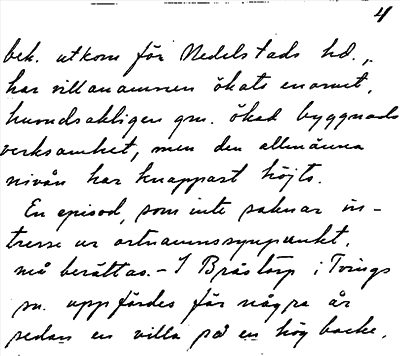 4
bek. utkom för Medelstads hd.,,
har villanamnen ökats enormt,
huvudsakligen gm. ökad byggnads
verksamhet, men den allmänna
nivån har knappast höjts.
En episod, som inte saknar in-
tresse ur ortnamnssynpunkt,
må berättas. – I Bråstorp i Tvings
sn. uppfördes för några år
sedan en villa på en hög backe,